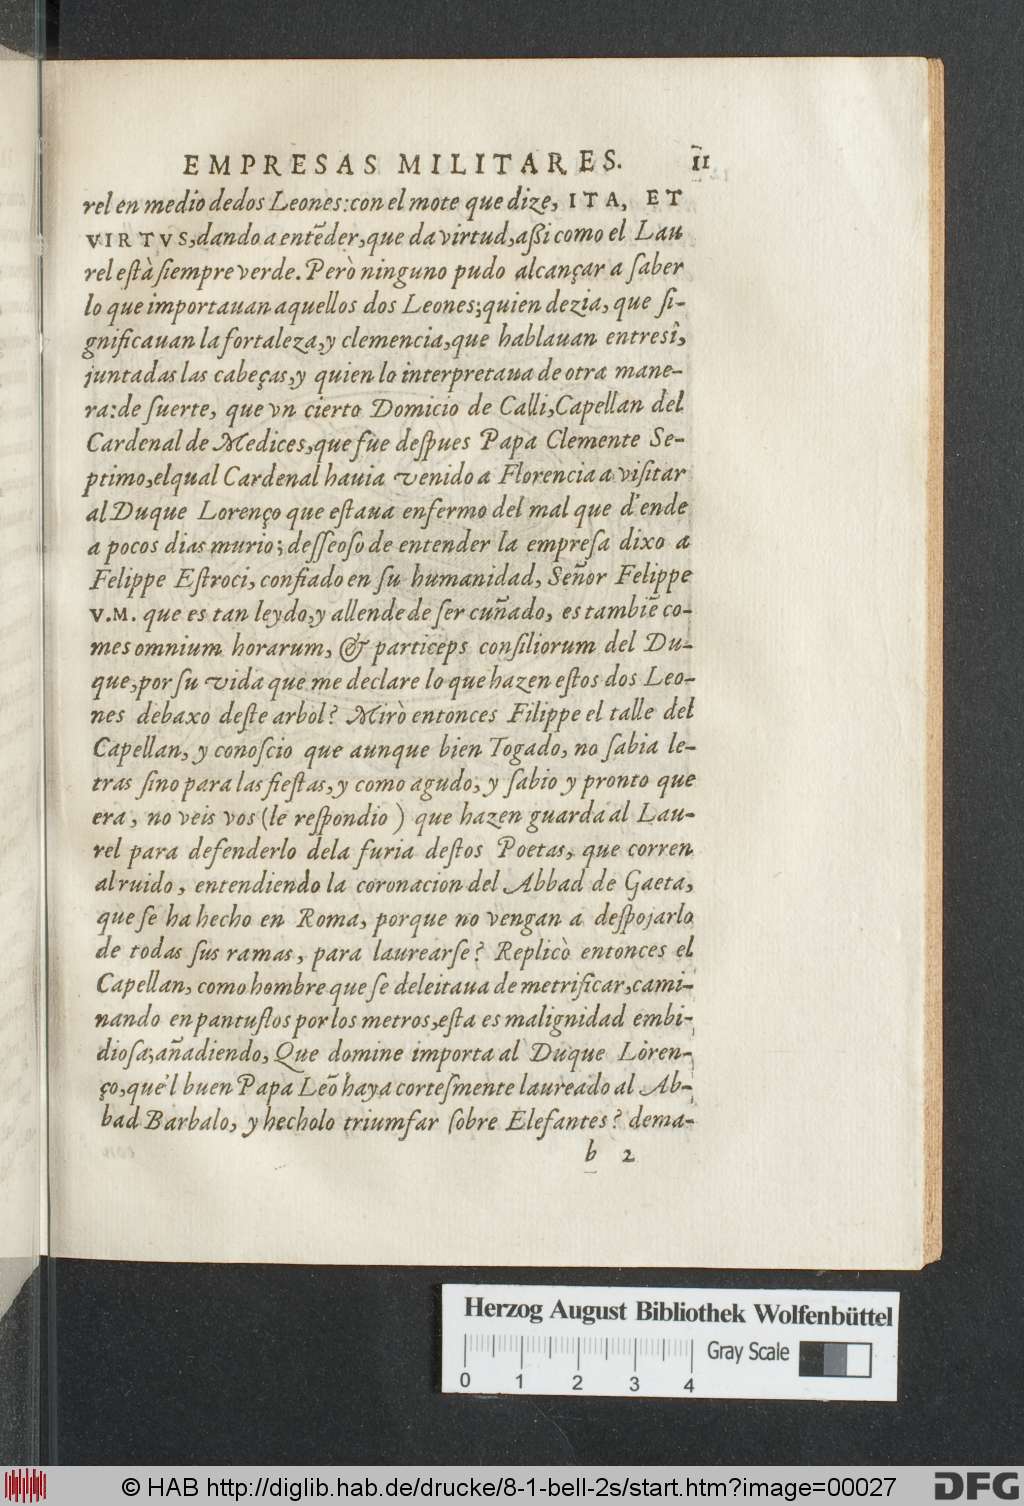 EMPRESAS MILITARES. 11
rel en medio de dos Leones: con el mote que dize, ITA, ET
VIRTVS, dando a entẽder, que da virtud, aßi como el Lau
rel està siempre verde. Però ninguno pudo alcançar a saber
lo que importauan aquellos dos Leones; quien dezia, que si-
gnificauan la fortaleza, y clemencia, que hablauan entresì,
juntadas las cabeças, y quien lo interpretaua de otra mane-
ra: de suerte, que vn cierto Domicio de Calli, Capellan del
Cardenal de Medices, que fue despues Papa Clemente Se-
ptimo, elqual Cardenal hauia venido a Florencia a visitar
al Duque Lorenço que estaua enfermo del mal que d'ende
a pocos dias murio; desseoso de entender la empresa dixo a
Felippe Estroci, confiado en su humanidad, Señor Felippe
V.M. que es tan leydo, y allende de ser cuñado, es tambiẽ co-
mes omnium horarum, & particeps consiliorum del Du-
que, por su vida que me declare lo que hazen estos dos Leo-
nes debaxo deste arbol? Mirò entonces Filippe el talle del
Capellan, y conoscio que aunque bien Togado, no sabia le-
tras sino para las fiestas, y como agudo, y sabio y pronto que
era, no veis vos (le respondio) que hazen guarda al Lau-
rel para defenderlo dela furia destos Poetas, que corren
al ruido, entendiendo la coronacion del Abbad de Gaeta,
que se ha hecho en Roma, porque no vengan a despojarlo
de todas sus ramas, para laurearse? Replicò entonces el
Capellan, como hombre que se deleitaua de metrificar, cami-
nando en pantuflos por los metros, esta es malignidad embi-
diosa; añadiendo, Que domine importa al Duque Loren-
ço, que'l buen Papa Leõ haya cortesmente laureado al Ab-
bad Barbalo, y hecholo triumfar sobre Elefantes? dema-
b 2
Herzog August Bibliothek Wolfenbüttel
Gray Scale
0 1 2 3 4
© HAB http://diglib.hab.de/drucke/8-1-bell-2s/start.htm?image=00027
DFG